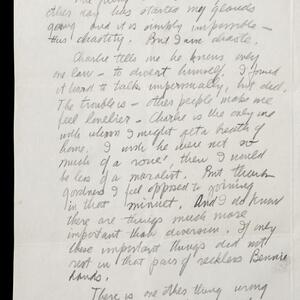 other day has started my glands
going and it is simply impossible –
this chastity. But I am chaste.
Charlie tells me he knows only
one law – to divert himself. I found
it hard to talk impersonally, but did.
The trouble is – other people make me
feel lonelier – Charlie is the only one
with whom I might get a breath of
home. I wish he were not so
much of a roué, then I would
be less of a moralist. But thank
goodness I feel opposed to joining
in that minuet. And I do know
there are things much more
important than diversion. If only
those important things did not
rest in that pair of reckless Bennie
hands.
There is one other thing wrong